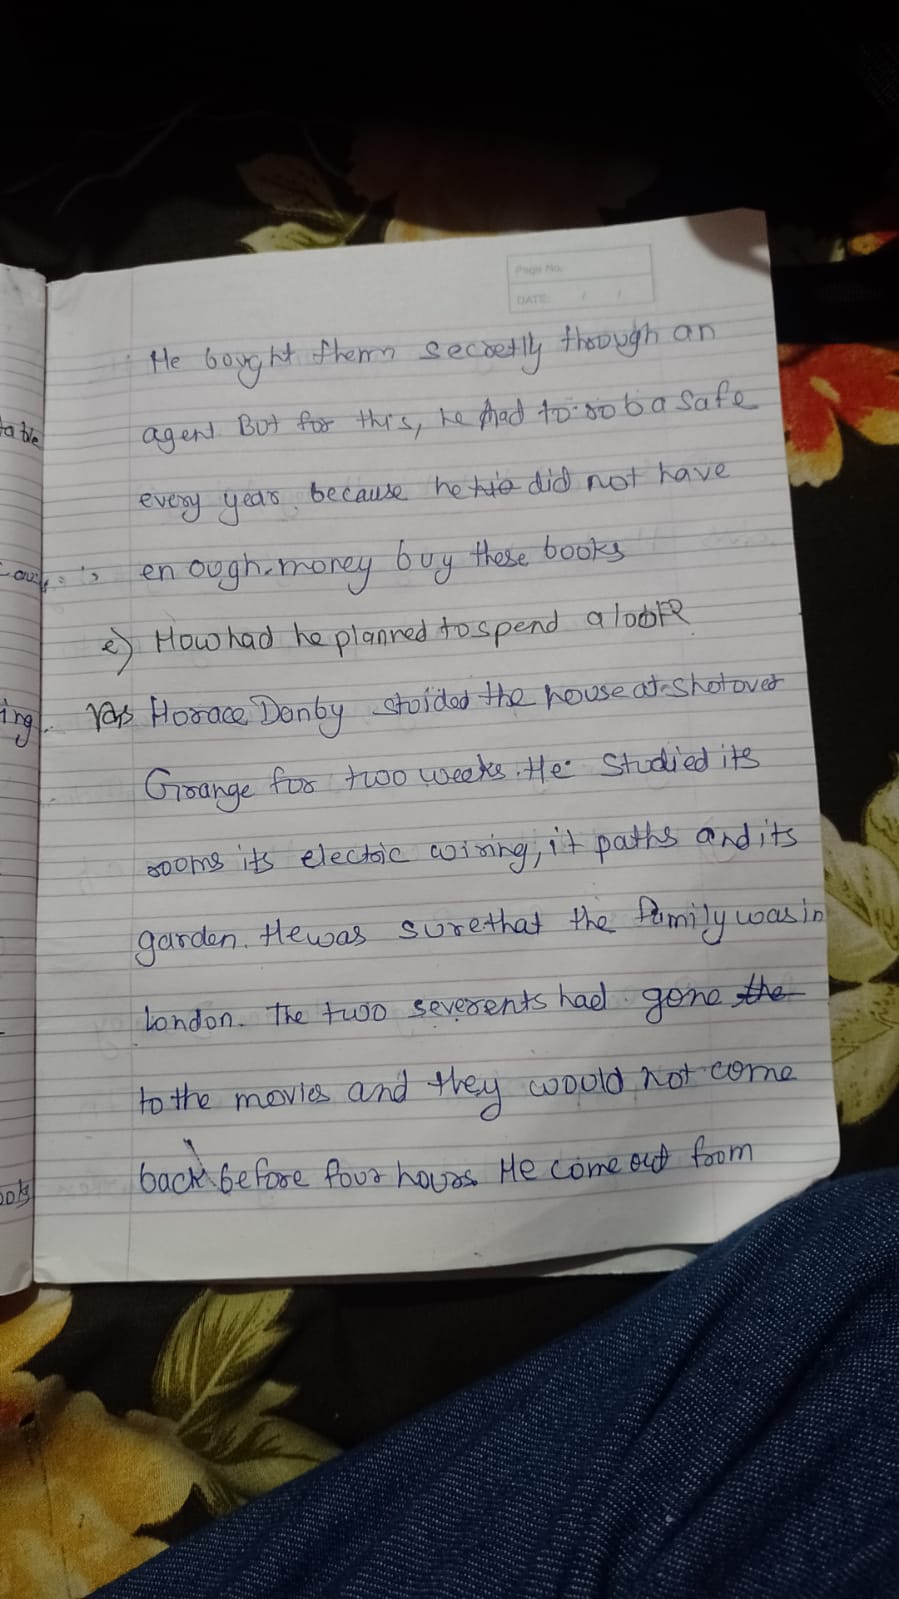 Page No.
DATE: / /
He bought them secretly through an
agent But for this, he had to rob a safe
every year. because he did not have
en ough money buy these books
e) How had he planned to spend a
Ans Horace Danby stoided the house at Shotover
Grange for two weeks. He studied its
rooms its electric wiring, it paths and its
garden. He was sure that the family was in
London. The two severents had gone the
to the movies and they would not come
back before four hours. He come out from
table
ing